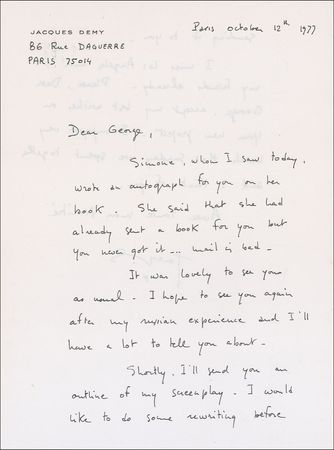 JACQUES DEMY
86 RUE DAGUERRE
PARIS 75014
Paris october 12th 1977
Dear George,
Simone, whom I saw today,
wrote an autograph for you on her
book. She said that she had
already sent a book for you but
you never got it... mail is bad -
It was lovely to see you
as usual. I hope to see you again
after my russian experience and I'll
have a lot to tell you about -
Shortly, I'll send you an
outline of my screenplay. I would
like to do some rewriting before